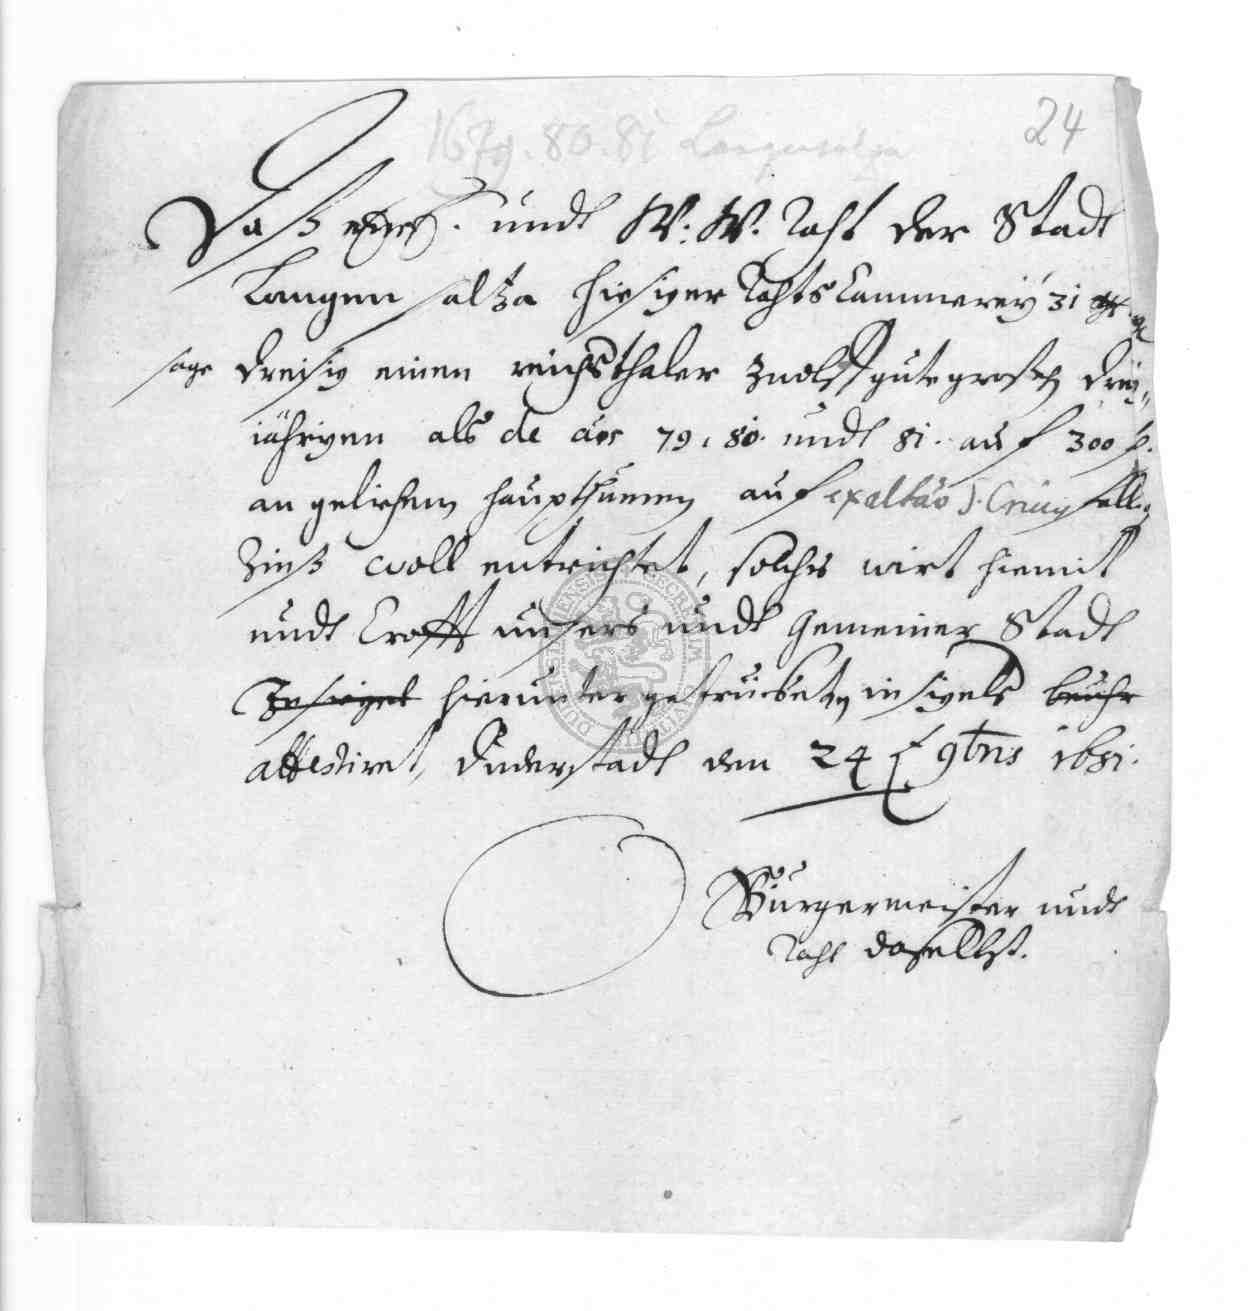 1679. 80. 81 Langensalza
24
Daß undt W: W. Raht der Stadt
Langensaltza hiesiger Rahts Cammerey 31
sage dreisig einen reichsthaler zwolff gute groschen drey„
jährigen als de aõs 79, 80. undt 81. auf 300
an geliehem haupt summen auf exaltaõ S. Crucis
Zinß woll entrichtet, solches wirt hiemit
undt Crafft unsers undt Gemeiner Stadt
Insiegel hierunter getruckten insigels
attestiret, Duderstadt den 24 9bris 1681.
Bürgermeister undt
Raht daselbst.